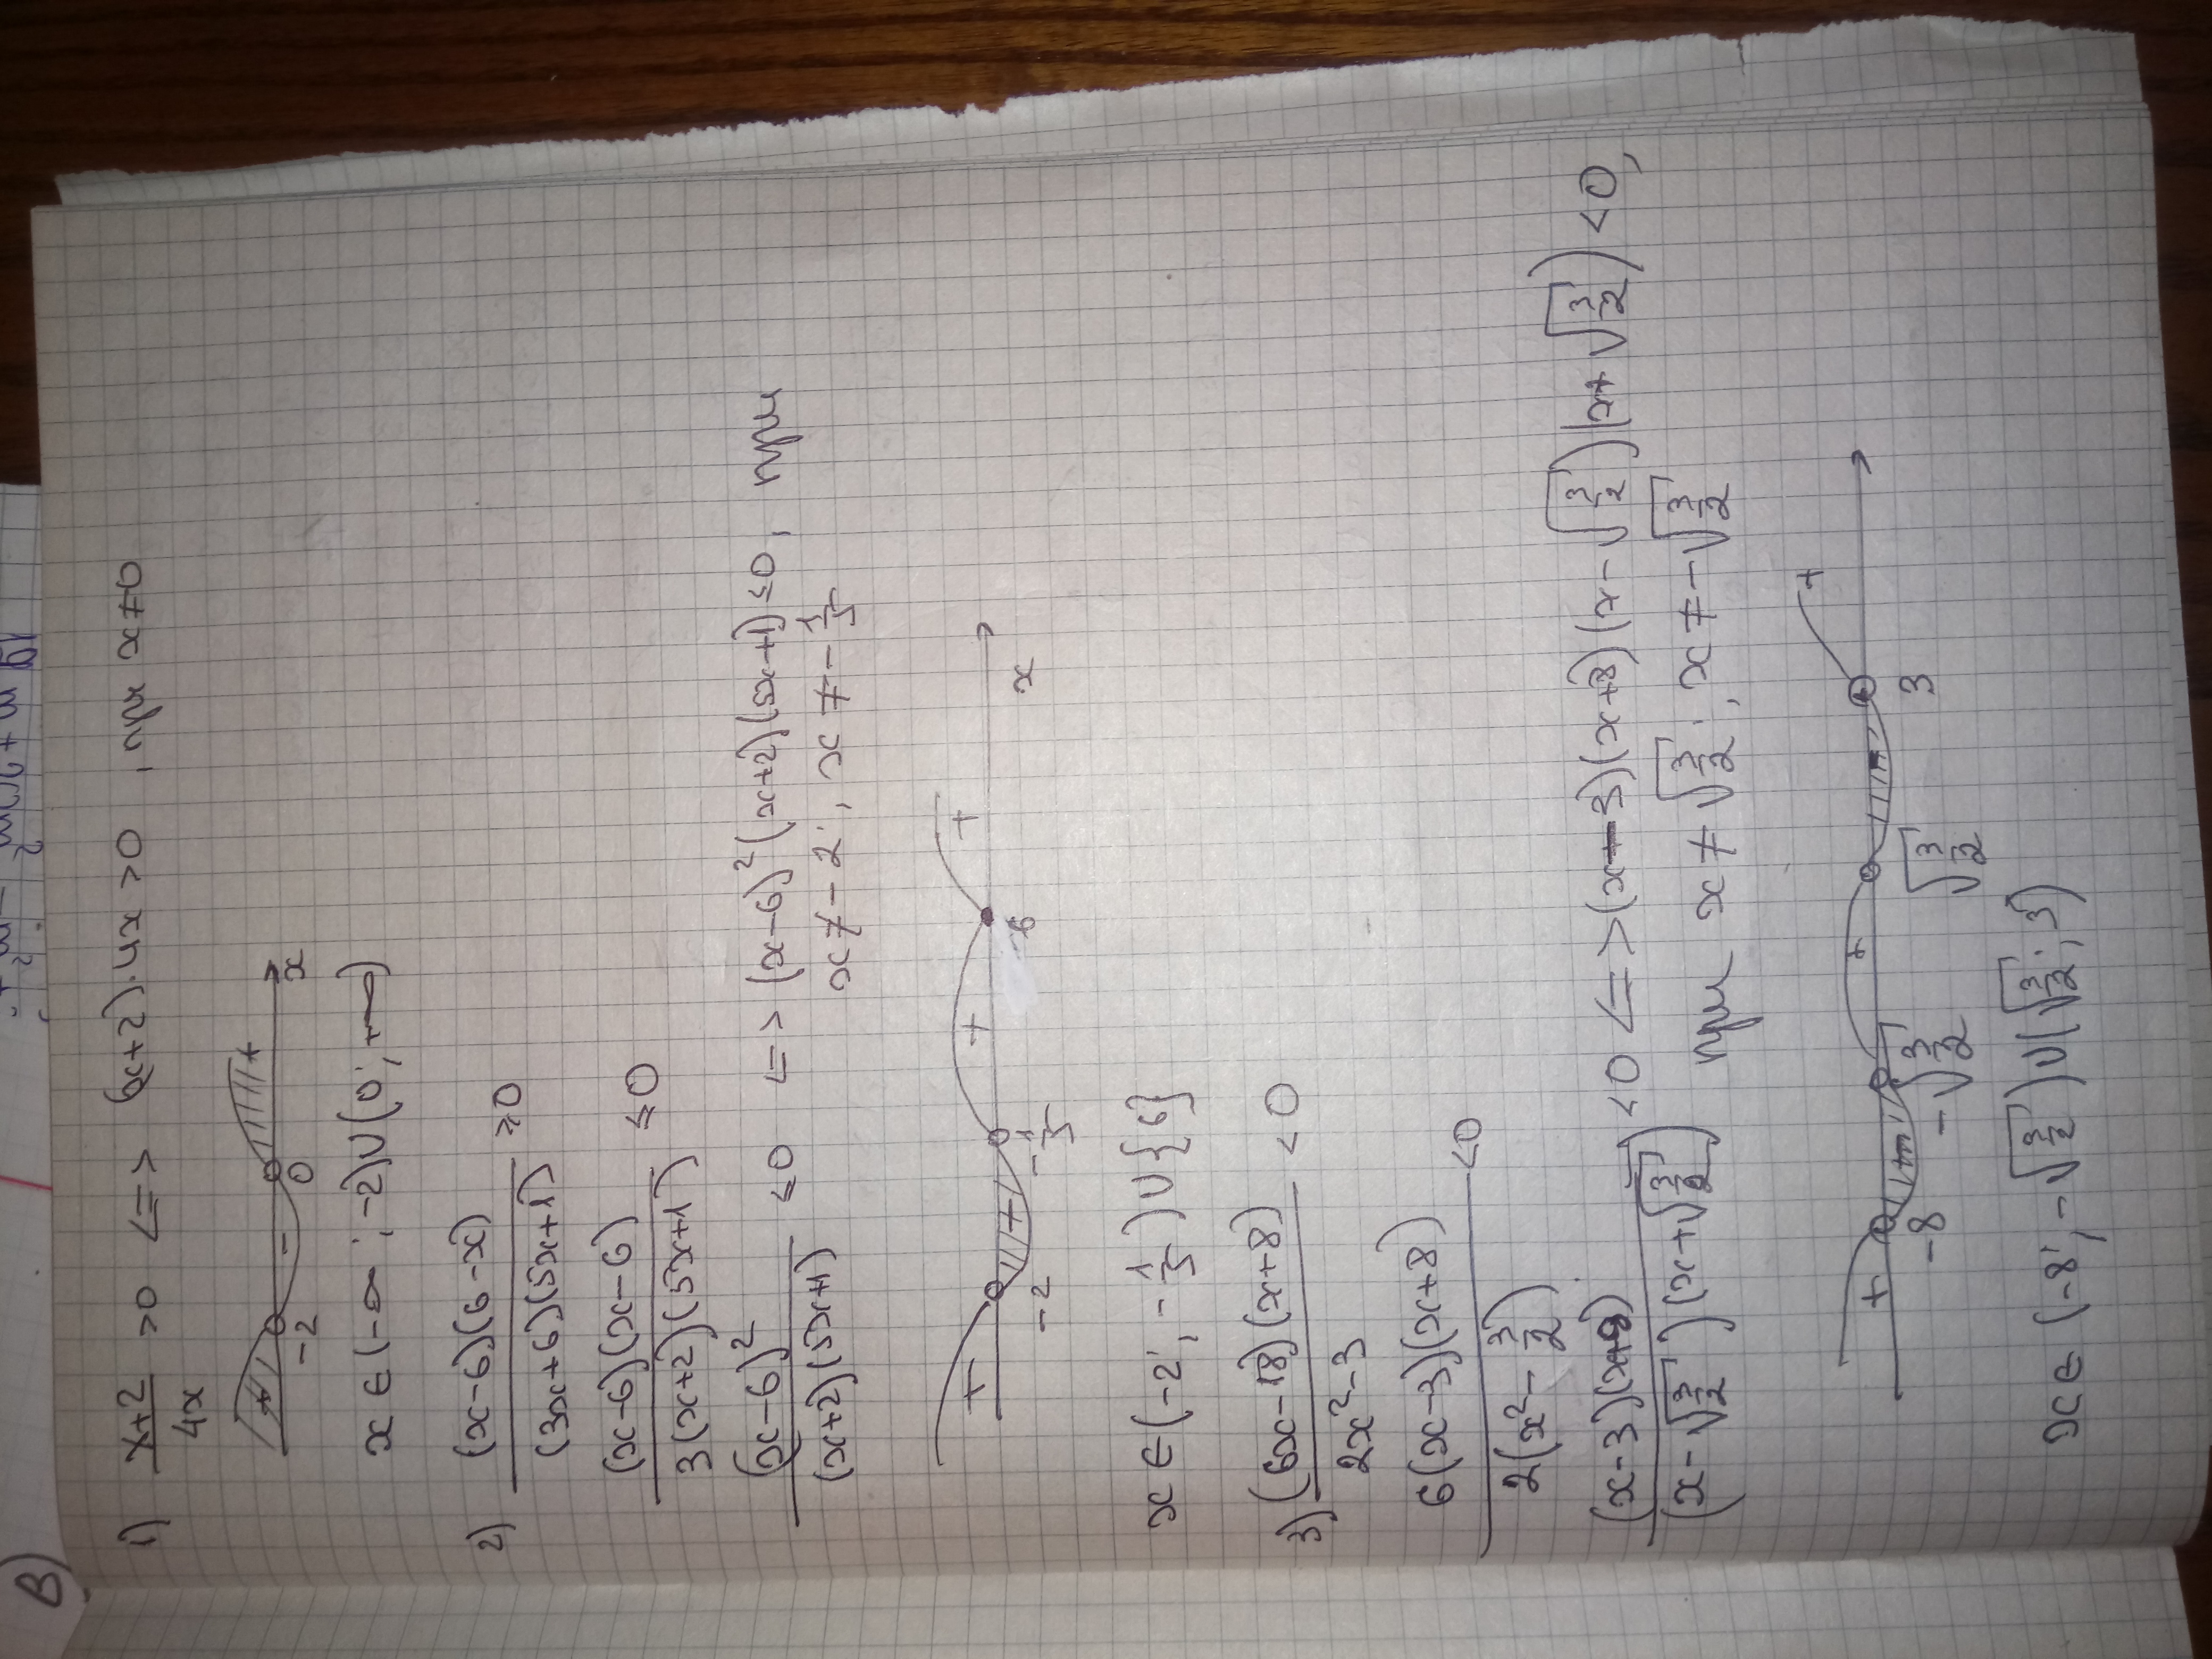 В)
1) x+2/4x >0 <=> (x+2)·4x >0 , при x≠0
+ - +
-2 0 x
x ∈ (-∞; -2)∪(0; +∞)
2) (x-6)(6-x)/(3x+6)(5x+1) ≥0
(x-6)(x-6)/3(x+2)(5x+1) ≤0
(x-6)²/(x+2)(5x+1) ≤0 <=> (x-6)²(x+2)(5x+1)≤0, при
x≠-2; x≠-1/5
+ + + +
-2 -1/5 6 x
x ∈ (-2; -1/5)∪{6}
3) (6x-18)(x+8)/2x²-3 <0
6(x-3)(x+8)/2(x²-3/2) <0
(x-3)(x+8)/(x-√3/2)(x+√3/2) <0 <=> (x-3)(x+8)(x-√3/2)(x+√3/2)<0,
при x≠√3/2; x≠-√3/2
+ + +
-8 -√3/2 √3/2 3
x∈(-8; -√3/2)∪(√3/2; 3)